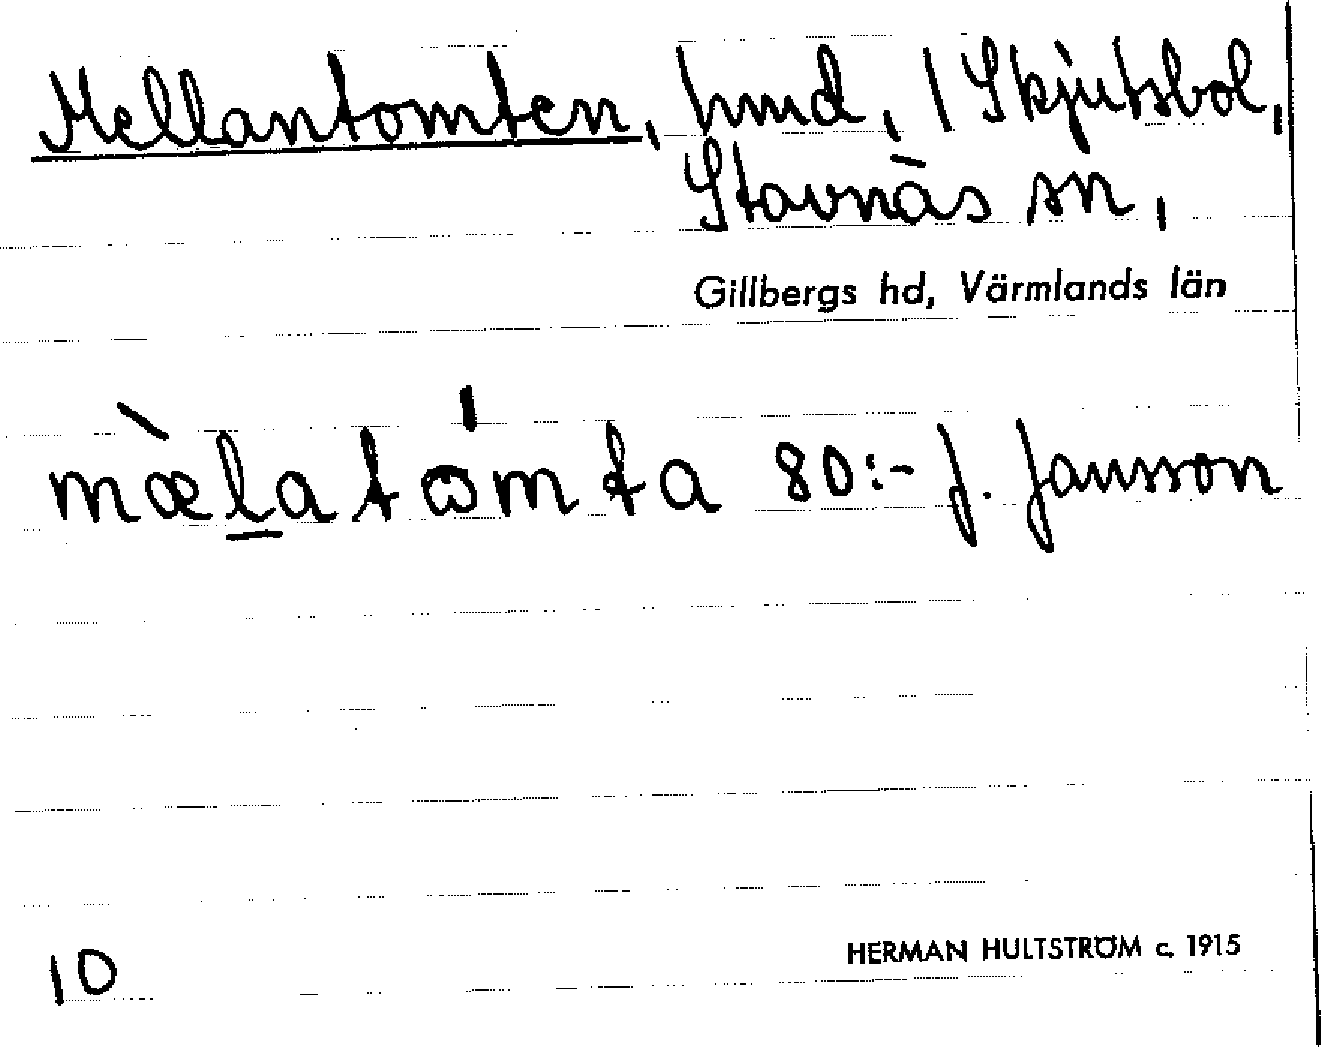 Mellantomten, hmd, 1 Skjutsbol,
Stavnäs sn,
Gillbergs hd, Värmlands län
mæ̀l̠atɷ́mta 80:- J. Jansson
10
HERMAN HULTSTRÖM c. 1915